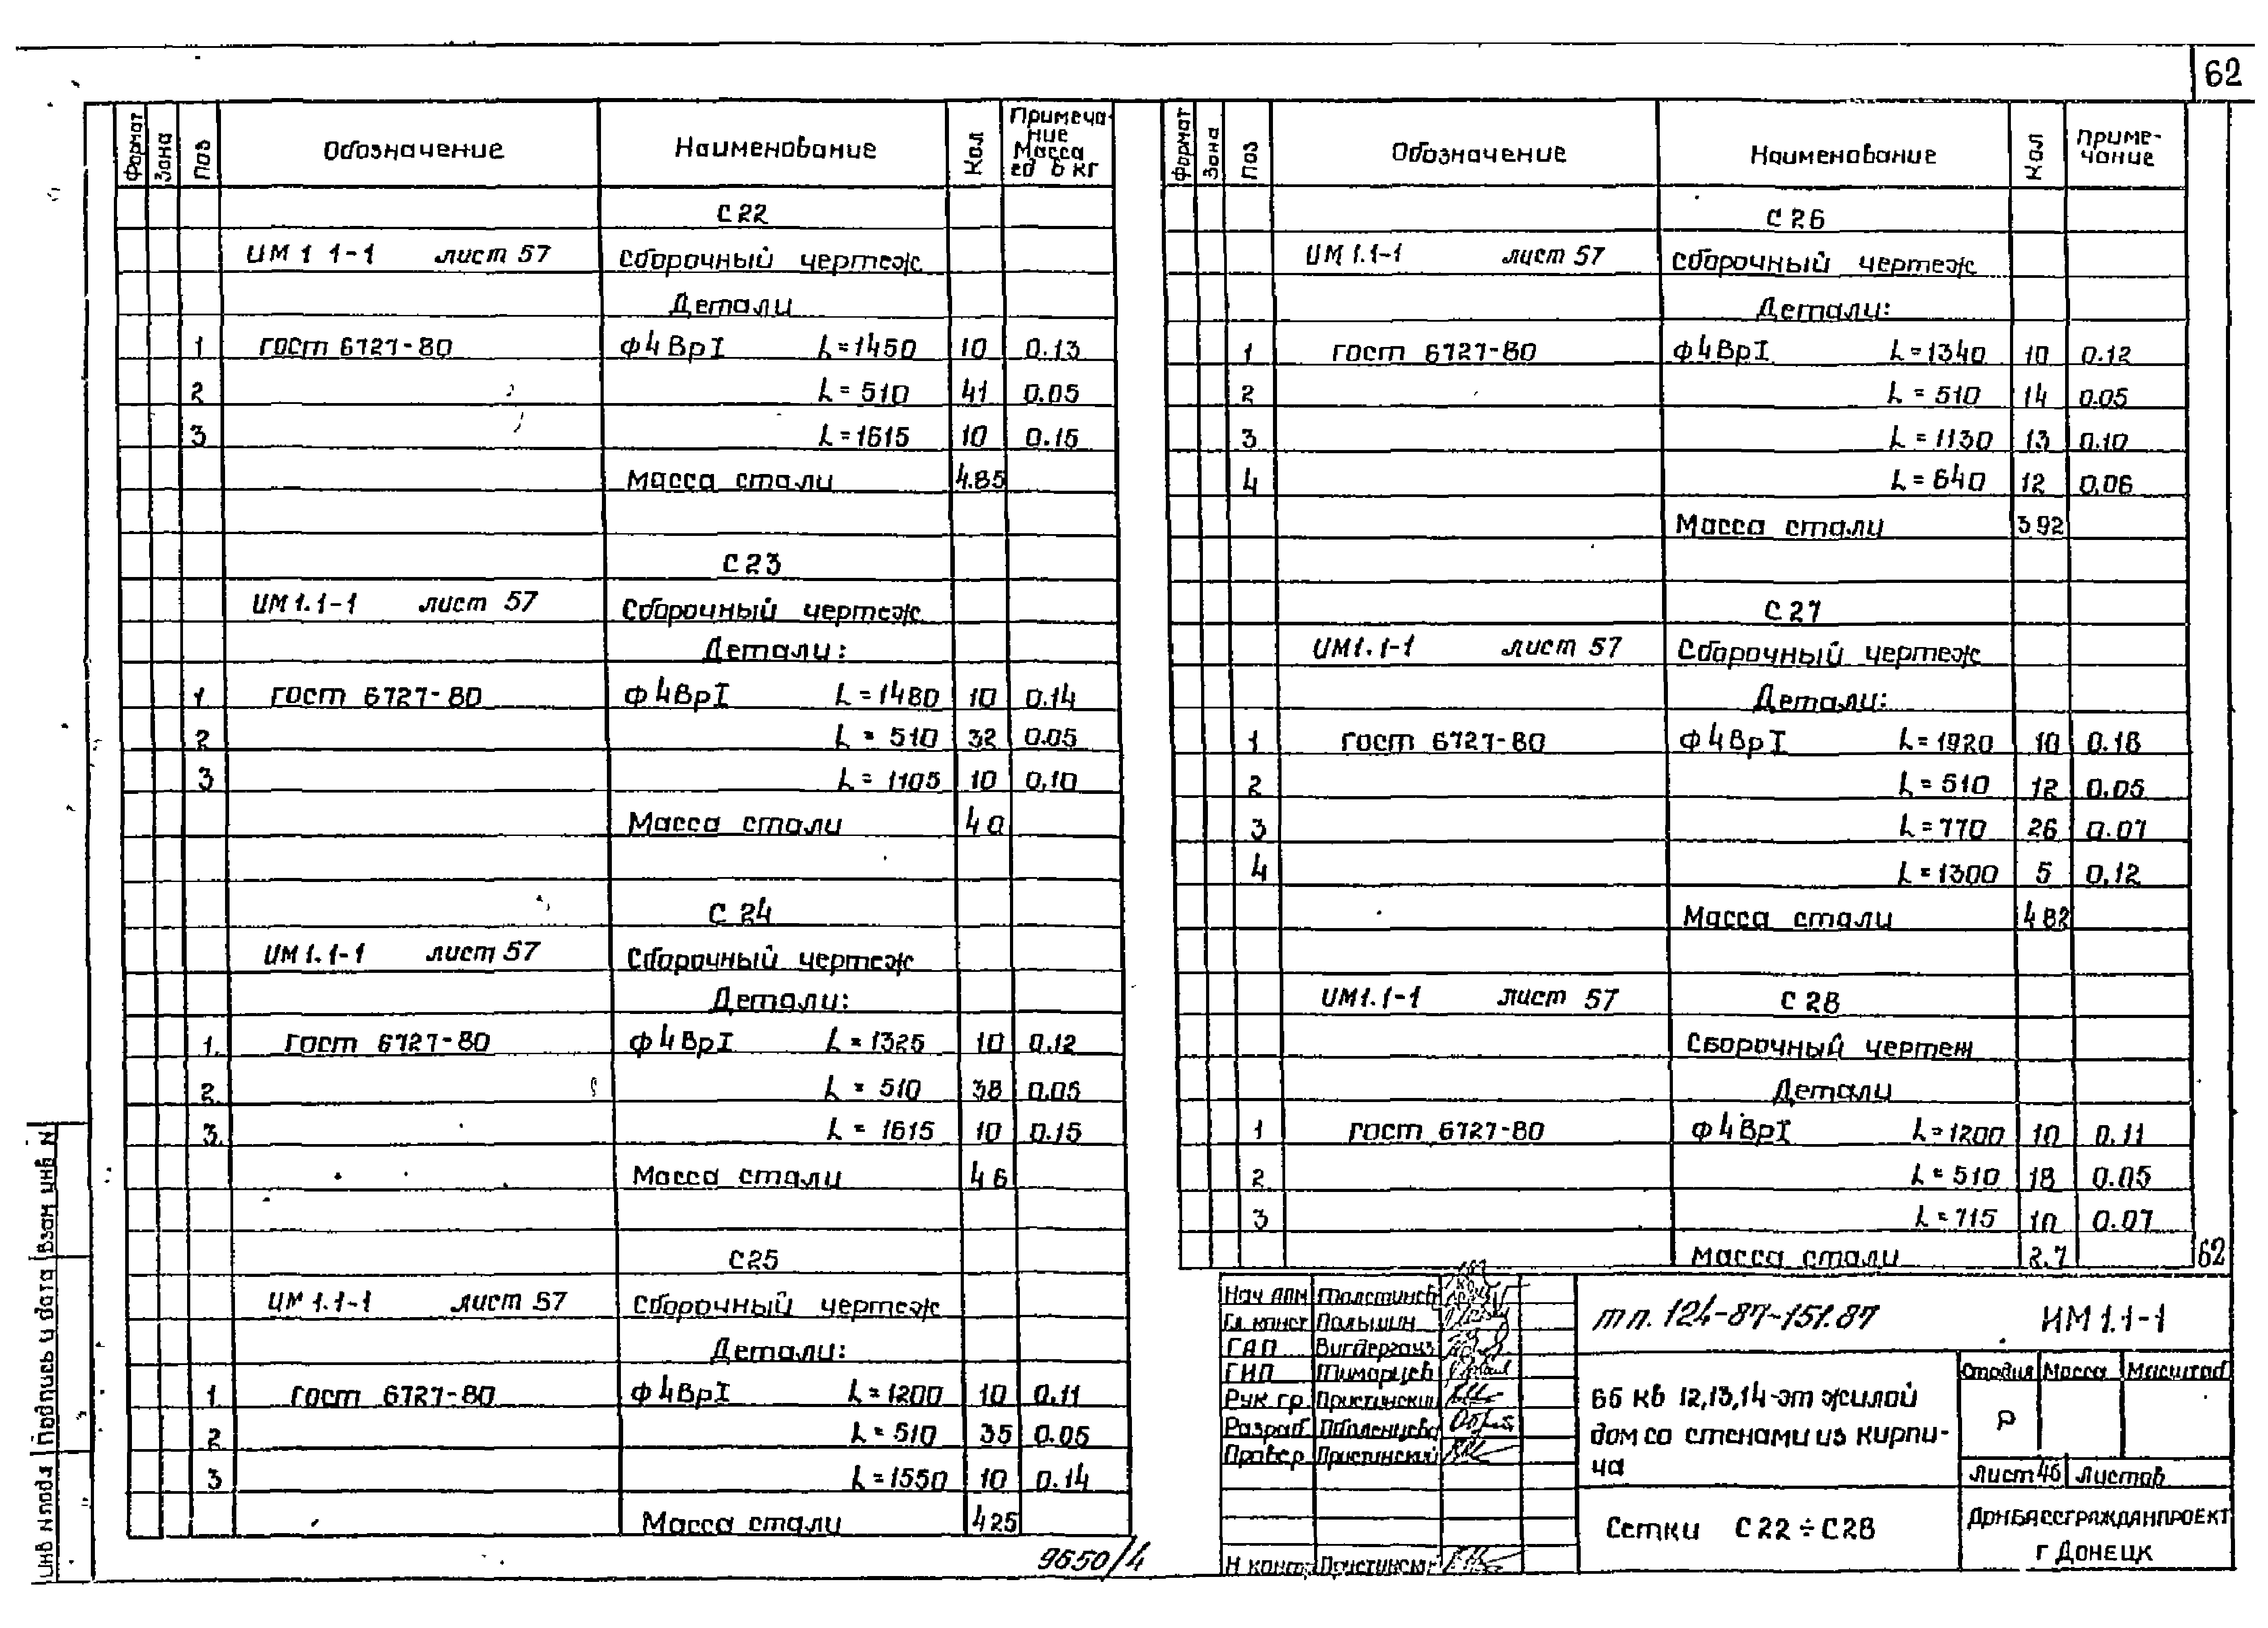 62
Формат Зона Поз Обозначение Наименование Кол Примечание Масса ед в кг
С 22
ИМ 1 1-1 лист 57 Сборочный чертеж
Детали
1 гост 6727-80 ф4ВрI L=1450 10 0.13
2 L=510 41 0.05
3 L=1615 10 0.15
Масса стали 4.85
С 23
ИМ 1.1-1 лист 57 Сборочный чертеж
Детали:
1 гост 6727-80 ф4ВрI L=1480 10 0.14
2 L=510 32 0.05
3 L=1105 10 0.10
Масса стали 4 0
С 24
ИМ 1.1-1 лист 57 Сборочный чертеж
Детали:
1. гост 6727-80 ф4ВрI L=1325 10 0.12
2. L=510 38 0.05
3. L=1615 10 0.15
Масса стали 4 6
С25
ИМ 1.1-1 лист 57 Сборочный чертеж
Детали:
1 гост 6727-80 ф4ВрI L=1200 10 0.11
2 L=510 35 0.05
3 L=1550 10 0.14
Масса стали 4 25
9650/4
Формат Зона Поз Обозначение Наименование Кол Приме-
чание
С 26
ИМ 1.1-1 лист 57 Сборочный чертеж
Детали:
1 гост 6727-80 ф4ВрI L=1340 10 0.12
2 L=510 14 0.05
3 L=1130 13 0.10
4 L=640 12 0.06
Масса стали 3 92
С 27
ИМ1.1-1 лист 57 Сборочный чертеж
Детали:
1 гост 6727-80 ф4ВрI L=1920 10 0.18
2 L=510 12 0.05
3 L=770 26 0.07
4 L=1300 5 0.12
Масса стали 4 82
ИМ1.1-1 лист 57 С 28
Сборочный чертеж
Детали
1 гост 6727-80 ф4ВрI L=1200 10 0.11
2 L=510 18 0.05
3 L=715 10 0.07
Масса стали 2.7
62
Гл конст Палышин
ГАП
ГИП
Рук гр Пристинский
Разраб
Провер Пристинский
Н контр
т п. 124-87-151.87 ИМ 1.1-1
66 кв 12,13,14-эт жилой
дом со стенами из кирпи-
ча
Стадия Масса Масштаб
Р
Лист 46 Листов
Сетки С 22 ÷ С28
ДОНБАССГРАЖДАНПРОЕКТ
г ДОНЕЦК
Инв N подл Подпись и дата Взам инв N